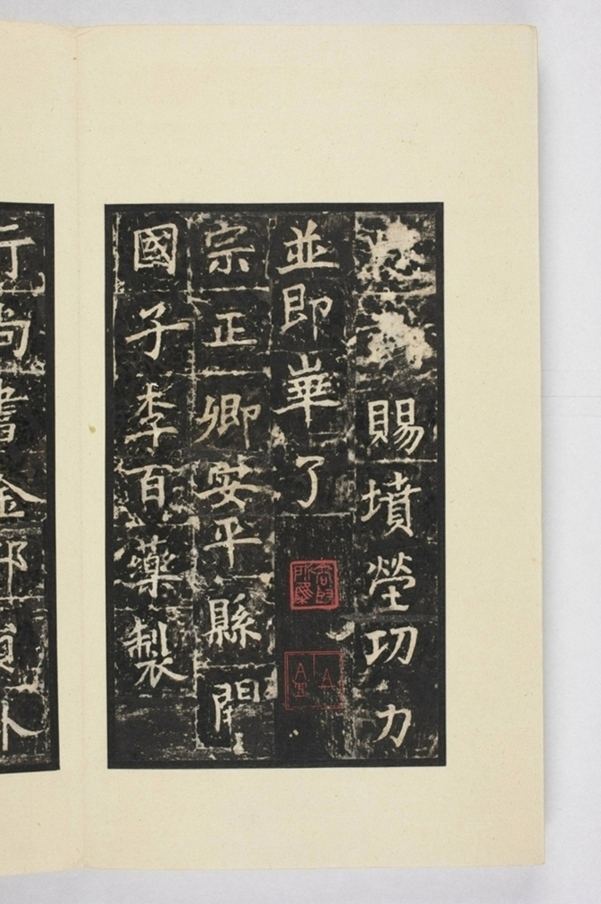 賜墳塋功力
並即畢了
宗正卿安平縣開
國子李百藥製
行尚書金部員外